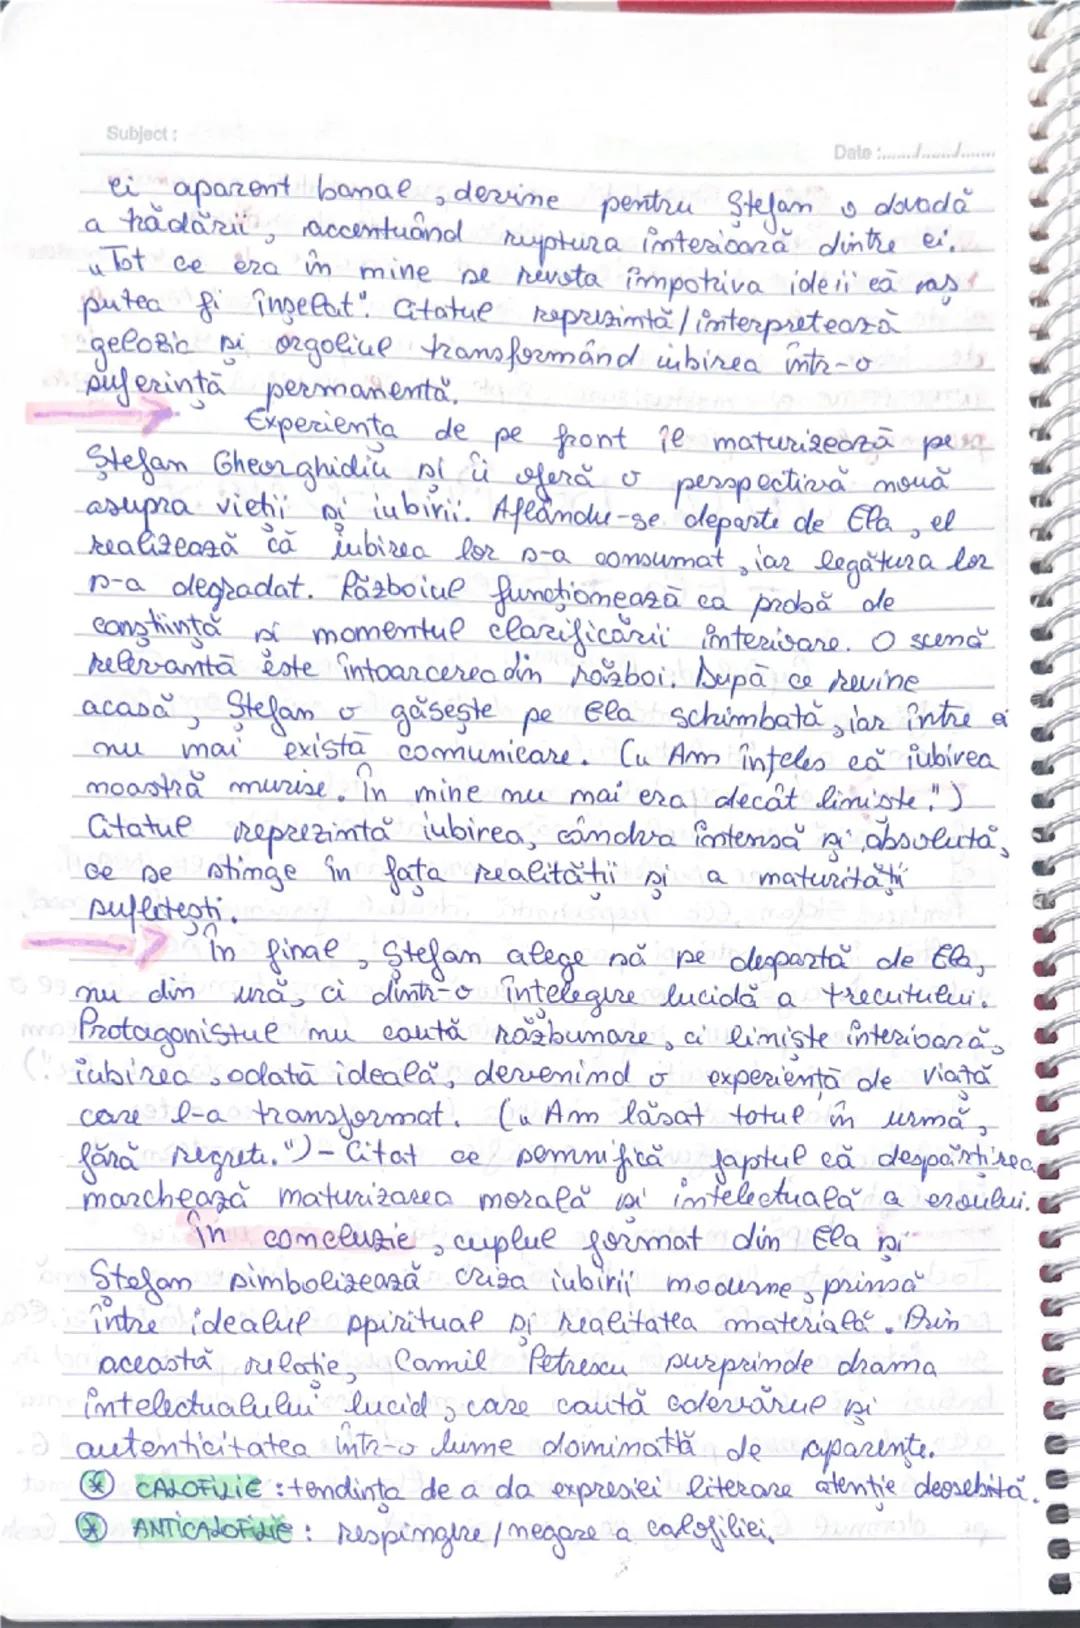 Subject :
Date :......./......./.......
ei aparent banal, devine pentru Ștefan o dovadă
a trădării, accentuând ruptura interioară dintre ei.
„Tot ce era în mine se revolta împotriva ideii că aș
putea fi înșelat". Citatul reprezintă/interpretează
gelozie și orgoliul transformând iubirea într-o
suferință permanentă.
Experiența de pe front îl maturizează pe
Ștefan Gheorghidiu și îi oferă o perspectivă nouă
asupra vieții și iubirii. Aflându-se departe de Ela, el
realizează că iubirea lor s-a consumat, iar legătura lor
s-a degradat. Războiul funcționează ca probă de
conștiință și momentul clarificării interioare. O scenă
relevantă este întoarcerea din război. După ce revine
acasă, Ștefan o găsește pe Ela schimbată, iar între ei
nu mai există comunicare. („Am înțeles că iubirea
noastră murise. În mine nu mai era decât liniște.")
Citatul reprezintă iubirea, cândva intensă și absolută,
ce se stinge în fața realității și a maturității
sufletești.
În final, Ștefan alege să se despartă de Ela,
nu din ură, ci dintr-o înțelegere lucidă a trecutului.
Protagonistul nu caută răzbunare, ci liniște interioară,
iubirea, odată ideală, devenind o experiență de viață
care l-a transformat. („Am lăsat totul în urmă,
fără regrete.") - Citat ce semnifică faptul că despărțirea
marchează maturizarea morală și intelectuală a eroului.
În concluzie, cuplul format din Ela și
Ștefan simbolizează criza iubirii moderne, prinsă
între idealul spiritual și realitatea materială. Prin
această relație, Camil Petrescu surprinde drama
intelectualului lucid, care caută adevărul și
autenticitatea într-o lume dominată de aparențe.
* CALOFILIE : tendința de a da expresiei literare atenție deosebită.
* ANTICALOFILIE : respingere/negare a calofiliei.